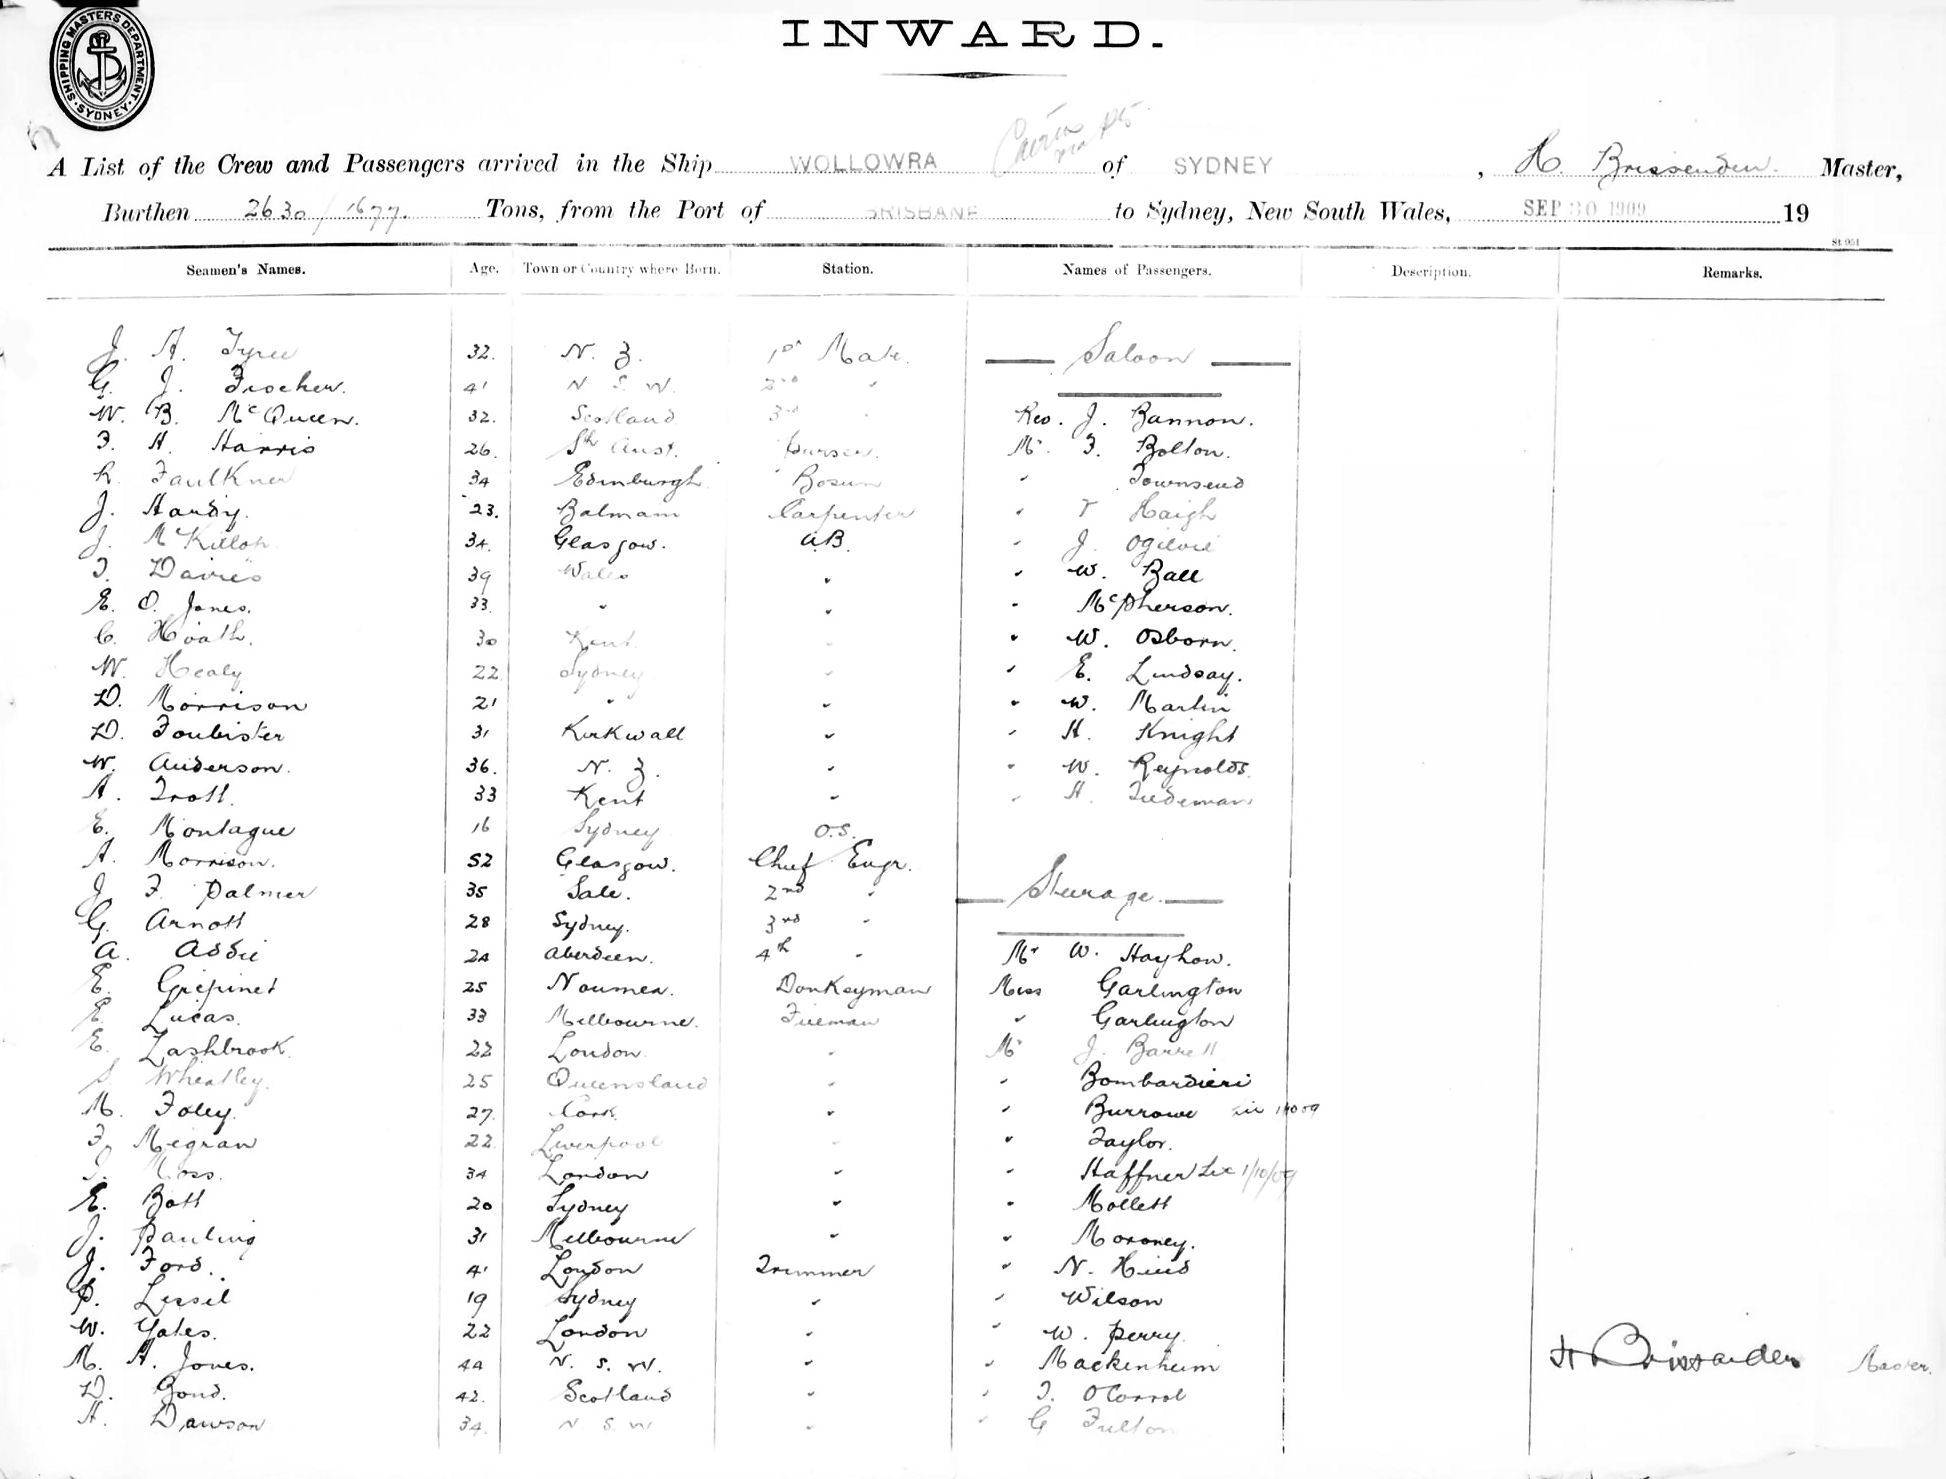 INWARD.
SHIPPING MASTERS DEPARTMENT SYDNEY
Cairns
A List of the Crew and Passengers arrived in the Ship WOLLOWRA of SYDNEY, H. Brissenden. Master,
Burthen 2630/1677. Tons, from the Port of BRISBANE to Sydney, New South Wales, SEP 30 1909 19
St 951
Seamen's Names. Age. Town or Country where Born. Station. Names of Passengers. Description. Remarks.
J. A. Tyree 32. N. Z. 1st Mate. Saloon
G. J. Fischer. 41 N S. W. 2nd "
W. B. McQueen. 32. Scotland 3rd " Rev. J. Bannon.
F. H. Harris 26. Sth Aust. Purser. Mr. F. Bolton.
R. Faulkner 34 Edinburgh. Bosun " Townsend
J. Hardy. 23. Balmain Carpenter " T Haigh
J. McKillop. 34. Glasgow. A.B. " J. Ogilvie
T. Davies 39 Wales " " W. Ball
E. O. Jones. 33. " " " McPherson.
C. Hoath. 30 Kent. " " W. Osborn.
W. Healy 22 Sydney " " E. Lindsay.
D. Morrison 21 " " " W. Martin
D. Foubister 31 Kirkwall " " H. Knight
W. Anderson. 36. N. Z. " " W. Reynolds.
A. Trott. 33 Kent " " H. Tiedeman
E. Montague 16 Sydney O.S.
A. Morrison. 52 Glasgow. Chief Engr.
J. F. Palmer 35 Sale. 2nd " Steerage.
G. Arnott 28 Sydney. 3rd "
A. Addie 24 Aberdeen. 4th " Mr W. Hayhow.
E. Griepinet 25 Noumea. Donkeyman Miss Garlington
E. Lucas. 33 Melbourne. Fireman " Garlington
E. Lashbrook. 22 London. " Mr J. Barrett
S. Wheatley. 25 Queensland " " Bombardieri
M. Foley. 27. Cork. " " Burrowe
F. Megran 22 Liverpool " " Taylor.
Moss. 34 London " " Haffner 1/10/09
E. Bott 20 Sydney " " Mollett
J. Pauling 31 Melbourne " " Moroney.
J. Ford. 41 London Trimmer " N. Hind
P. Lessil 19 Sydney " " Wilson
W. Yates. 22 London " " W. Perry.
M. A. Jones. 44 N. S. W. " " Mackenheim H Brissenden Master.
D. Bond. 42. Scotland " " T. O'Carrol
H. Dawson 34. N S W " " G Fulton